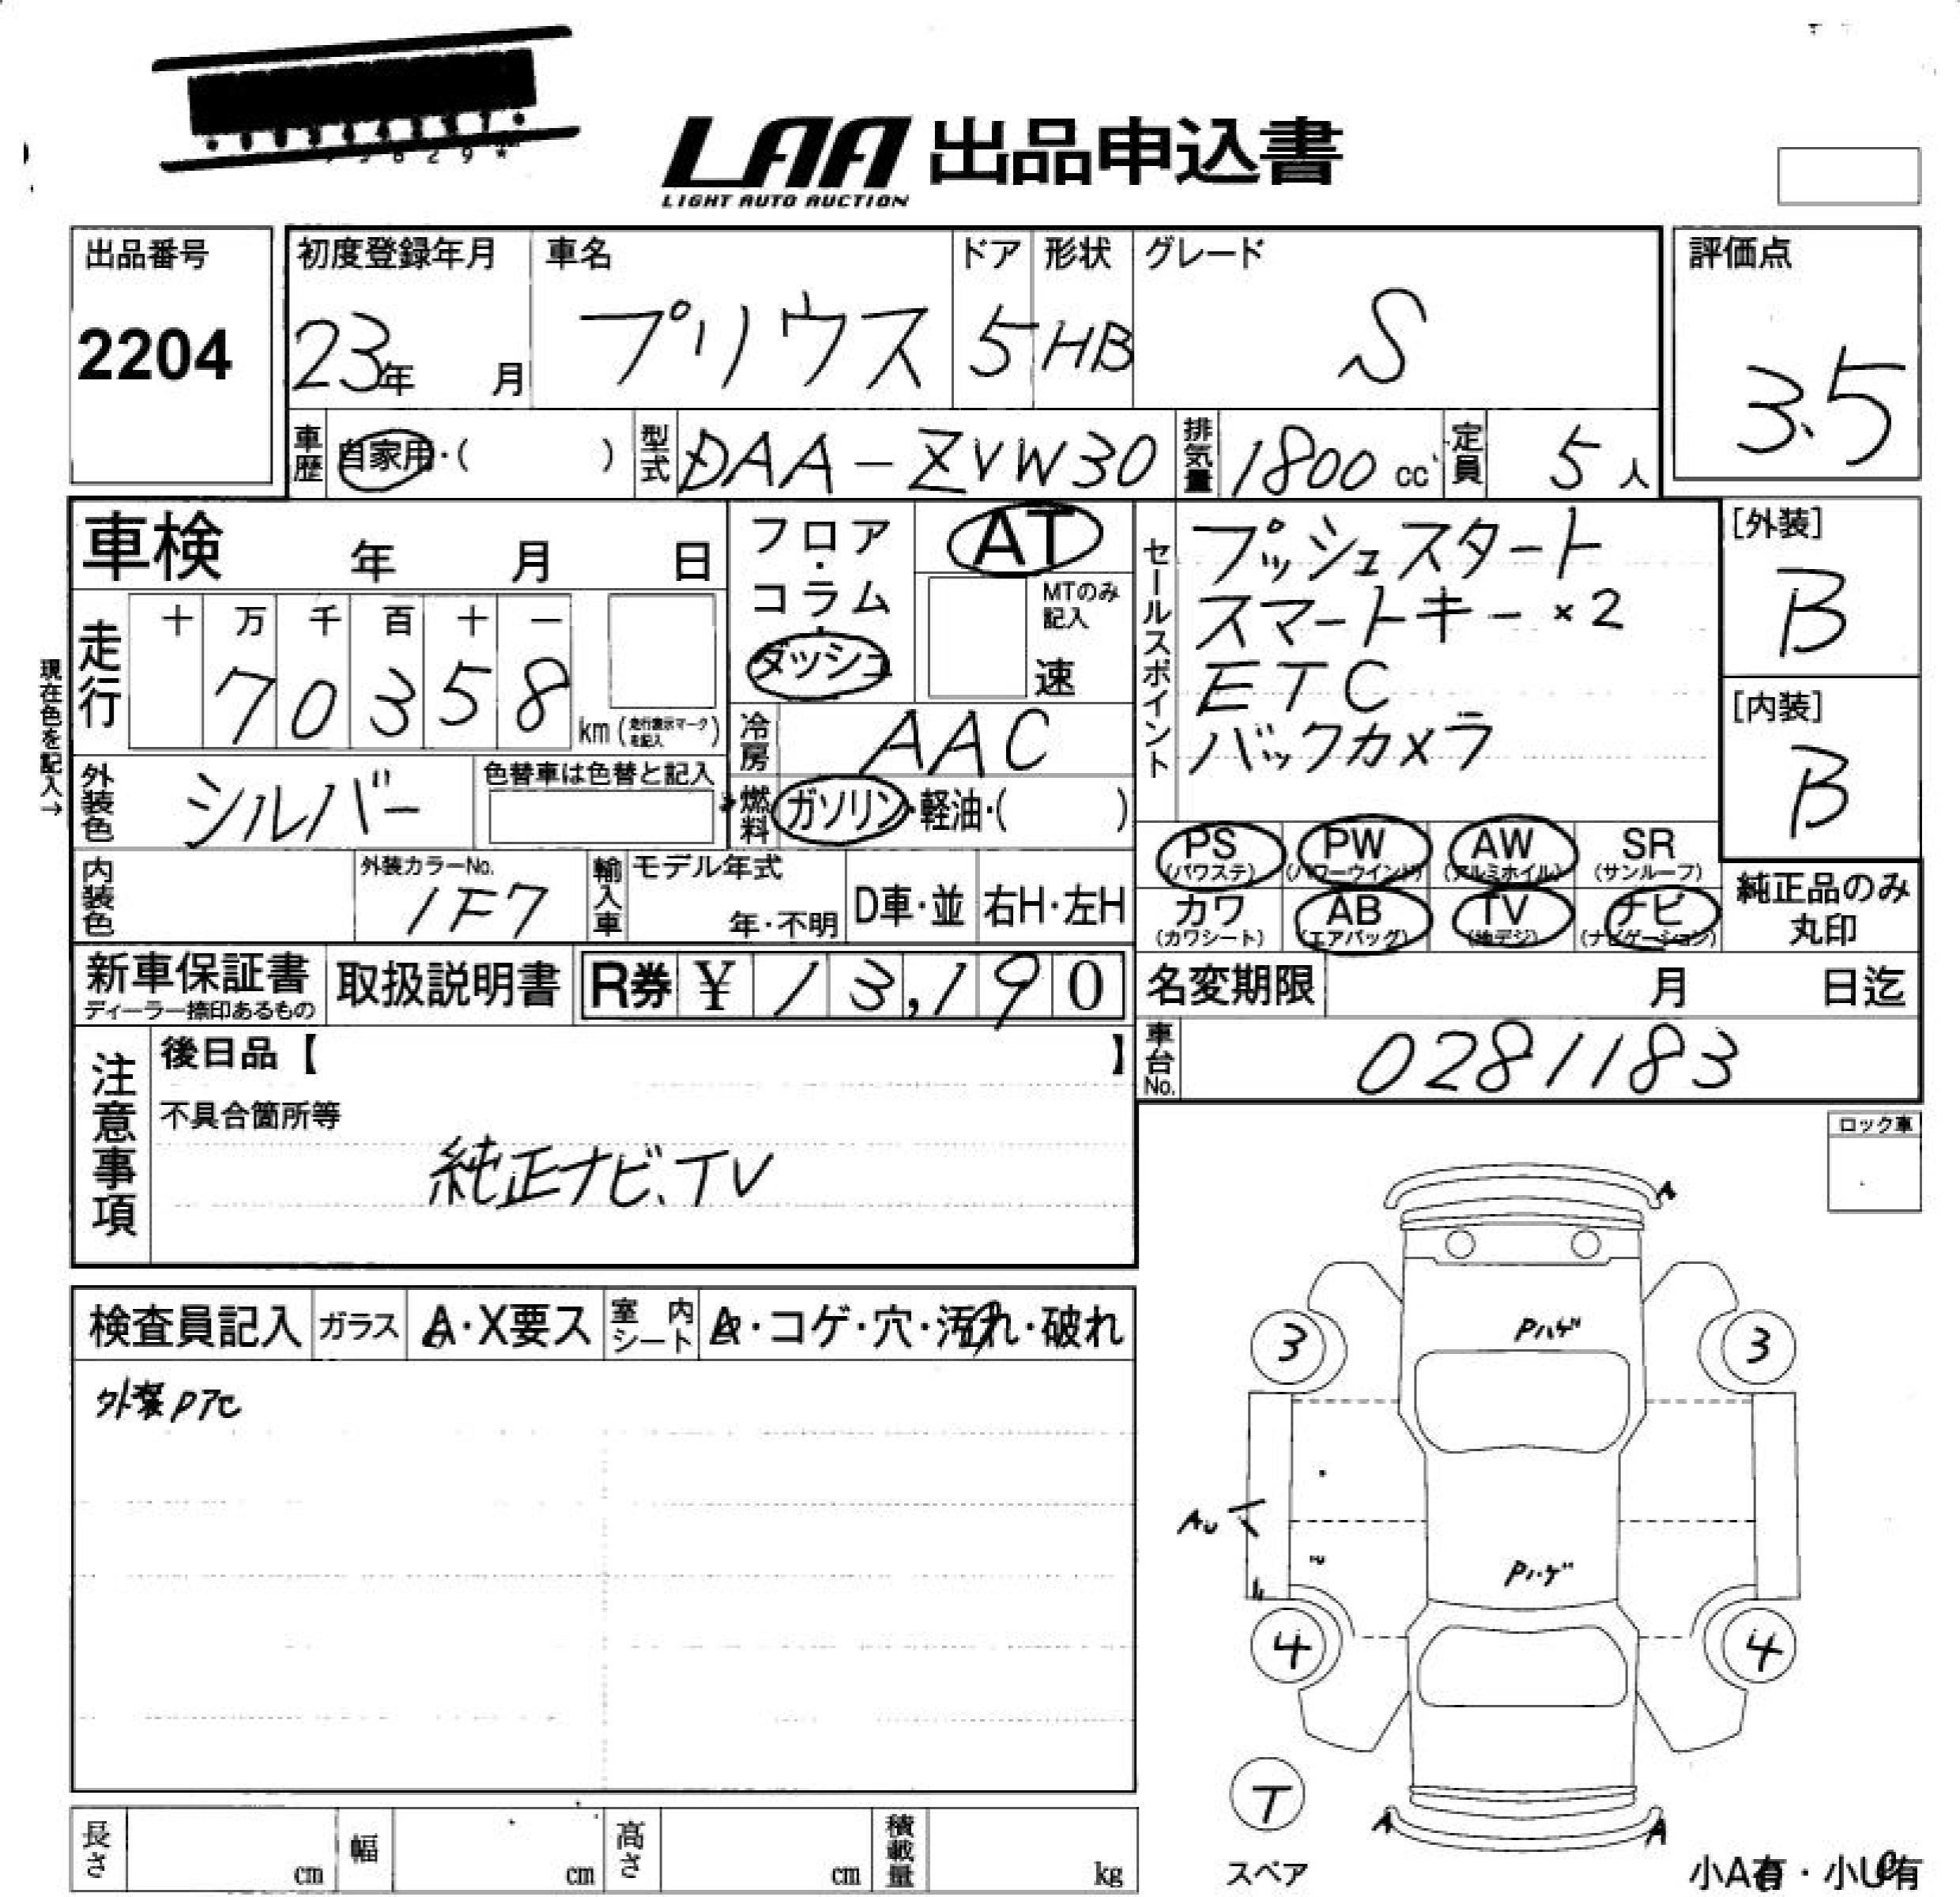 LAA 出品申込書
LIGHT AUTO AUCTION
出品番号
2204
初度登録年月
23年 月
車名
プリウス
ドア
5
形状
HB
グレード
S
評価点
3.5
車歴 自家用・( )
型式 DAA-ZVW30
排気量 1800 cc
定員 5 人
車検 年 月 日
フロア・コラム・ダッシュ
AT
MTのみ記入
速
セールスポイント
プッシュスタート
スマートキー×2
ETC
バックカメラ
[外装]
B
[内装]
B
現在色を記入→
走行
十 万 千 百 十 一
7 0 3 5 8
km (走行表示マークを記入)
冷房 AAC
外装色 シルバー
色替車は色替と記入
燃料 ガソリン・軽油・( )
PS (パワステ)
PW (パワーウインド)
AW (アルミホイル)
SR (サンルーフ)
カワ (カワシート)
AB (エアバッグ)
TV (地デジ)
ナビ (ナビゲーション)
純正品のみ
丸印
内装色
外装カラーNo.
1F7
輸入車
モデル年式
年・不明
D車・並
右H・左H
新車保証書
ディーラー捺印あるもの
取扱説明書
R券 ¥ 13,190
名変期限 月 日迄
車台No. 0281183
注意事項
後日品【 】
不具合箇所等
純正ナビ、TV
ロック車
検査員記入
ガラス A・X要ス
室内シート
・コゲ・穴・汚れ・破れ
外装PTC
A
Pハゲ
3
3
AU
Pハゲ
4
4
T
スペア
A
A
小A有・小U有
長さ cm
幅 cm
高さ cm
積載量 kg